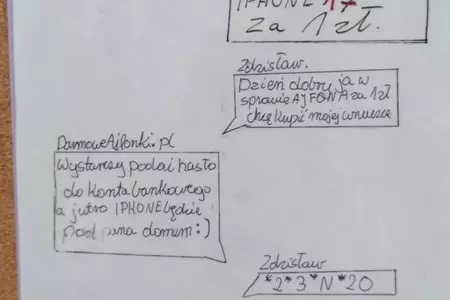 IPHONE 17
za 1 zł.
Zdzisław.
Dzień dobry, ja w
sprawie AJFONA za 1 zł
chcę kupić mojej wnuczce
DarmoweAjfonki.pl
Wystarczy podać hasło
do konta bankowego
a jutro IPHONE będzie
pod pana domem :)
Zdzisław
*2*3*N*20